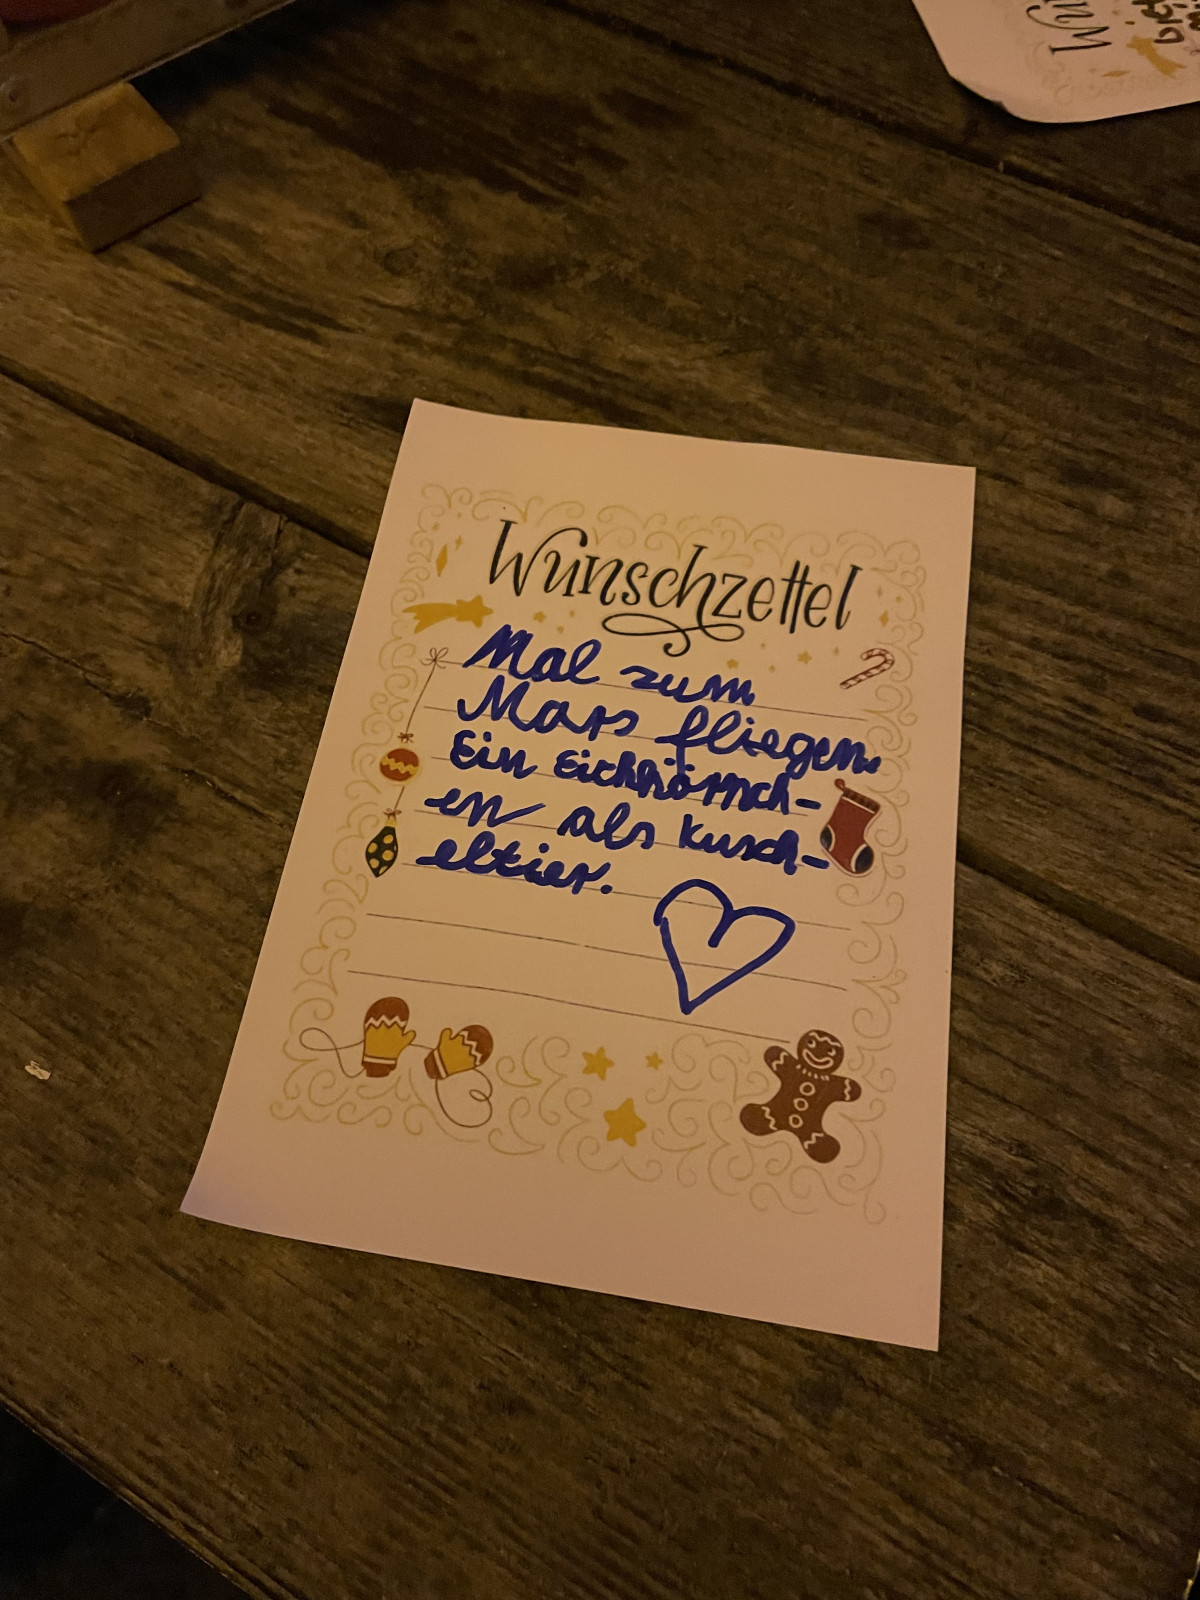 Wunschzettel
Mal zum
Mars fliegen.
Ein Eichhörnch-
en als Kusch-
eltier.